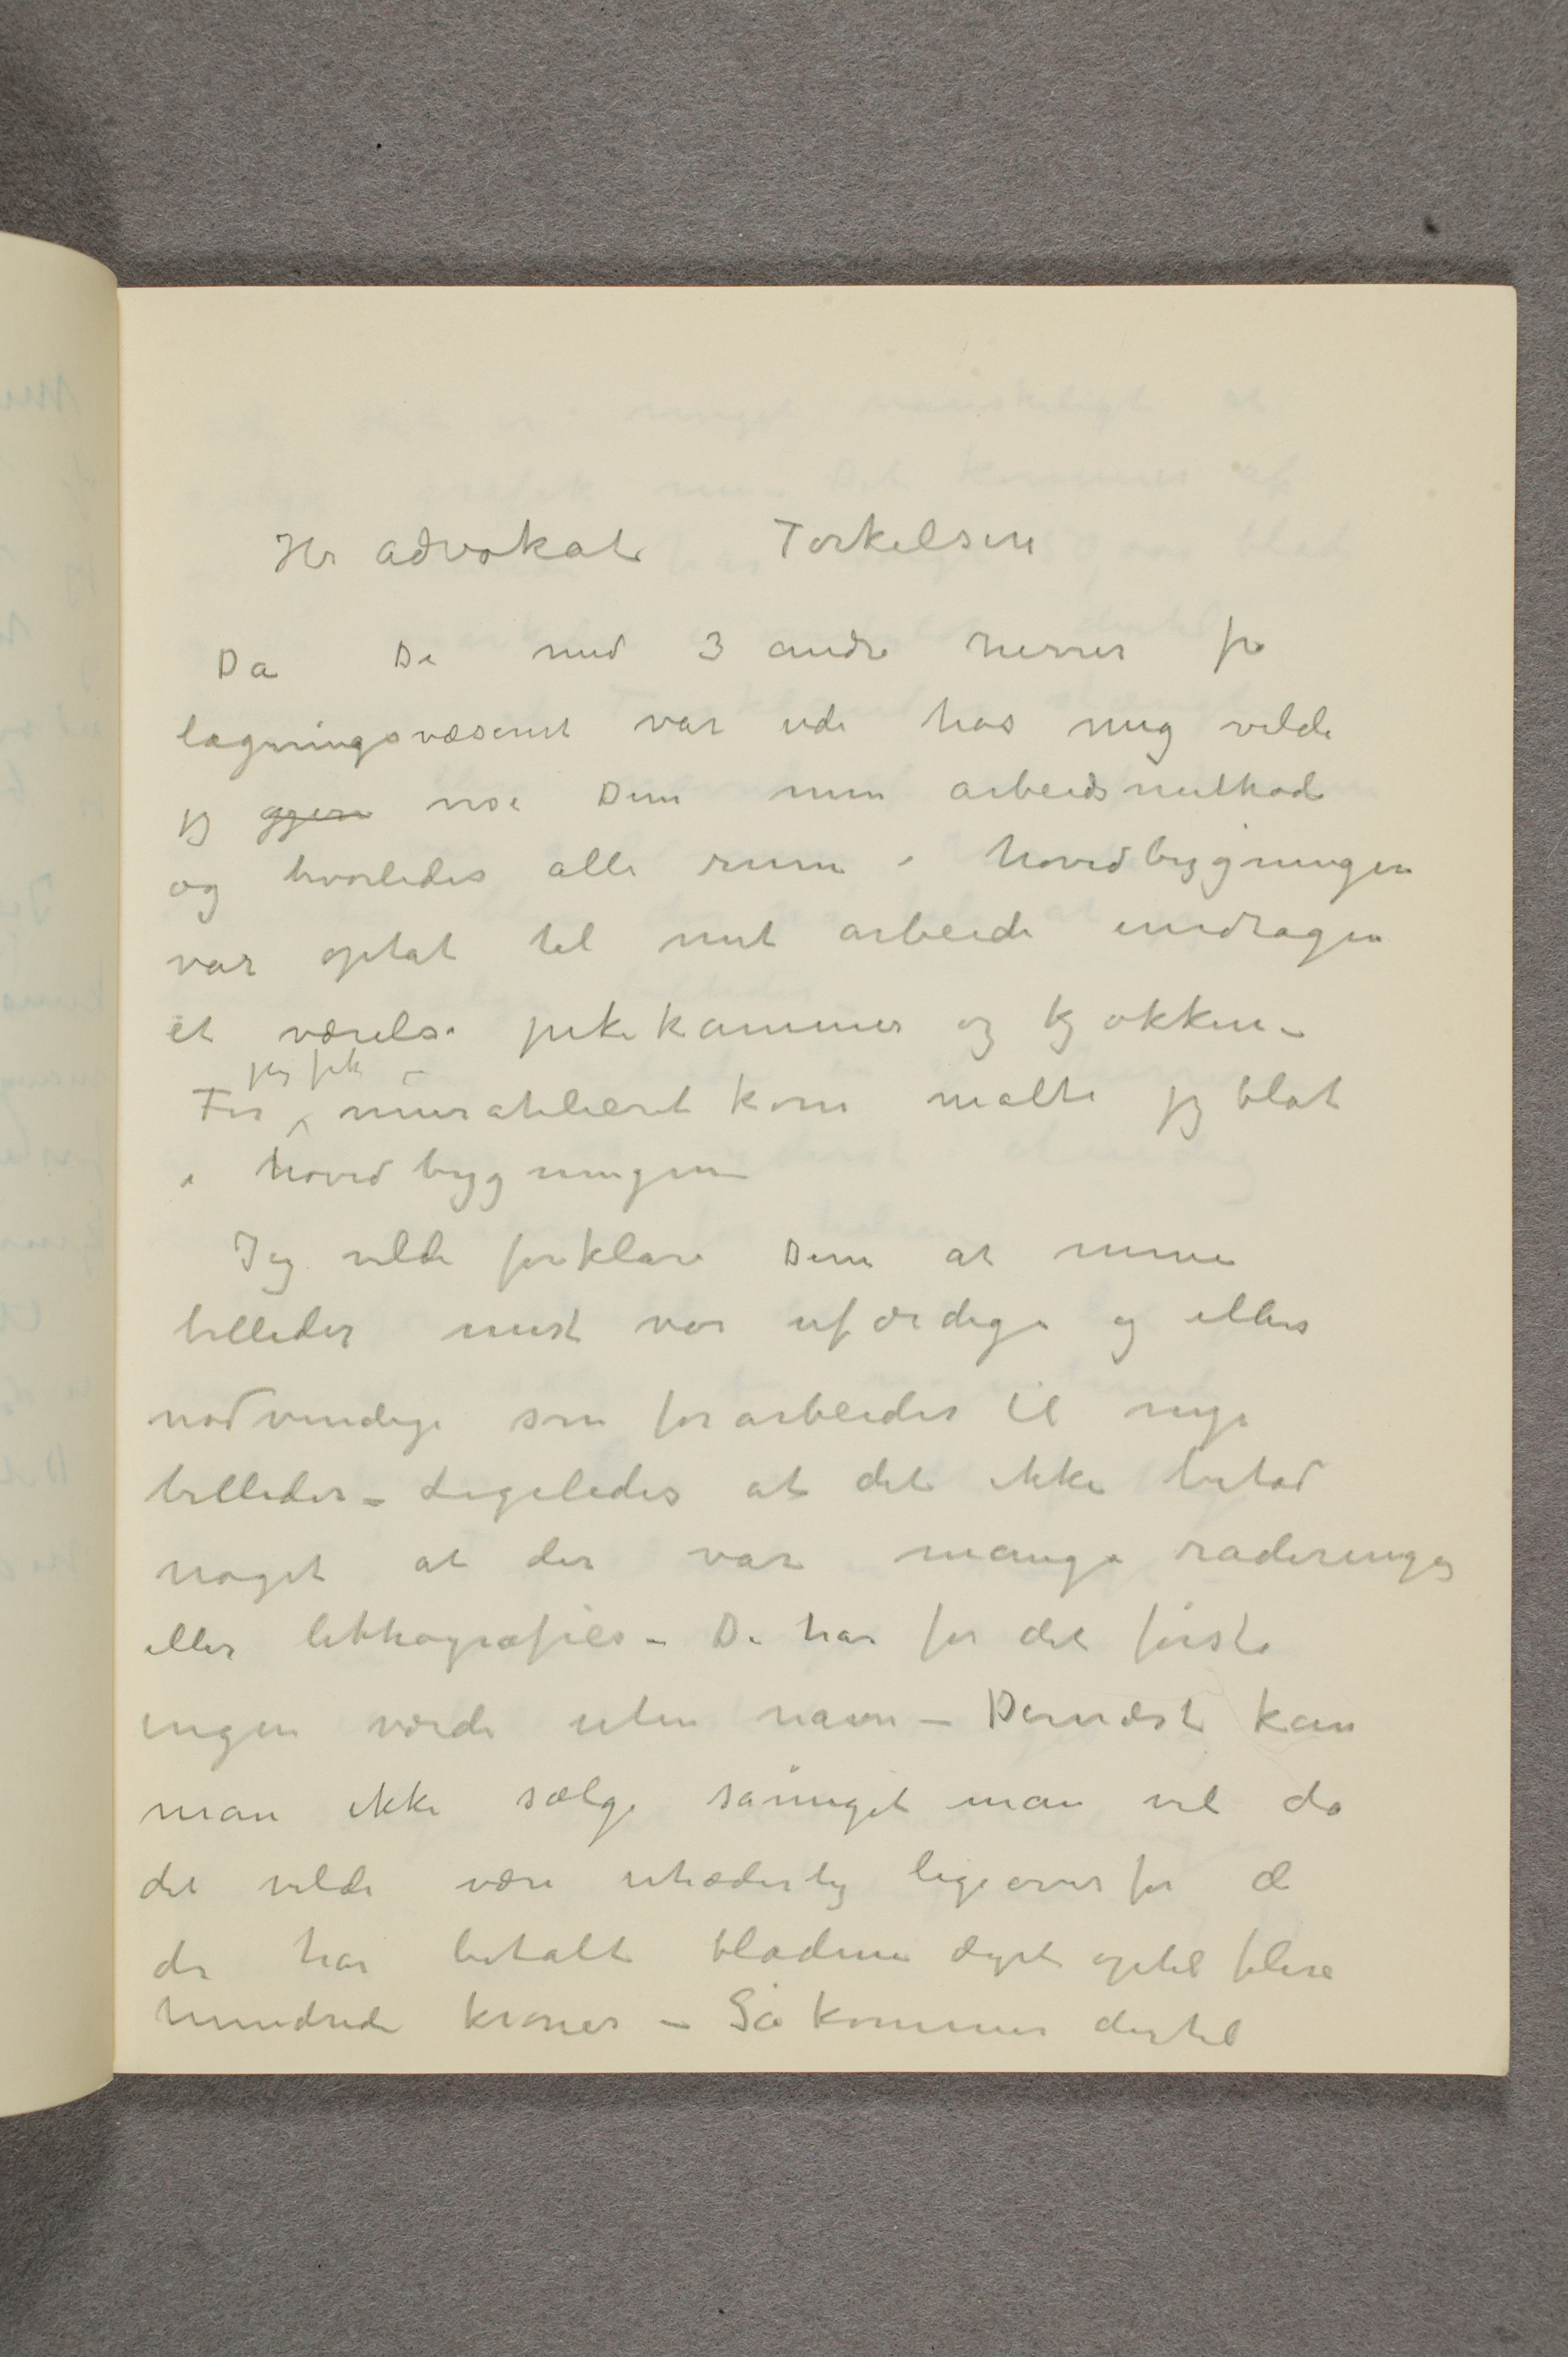 Hr advokat Torkelsen
Da De med 3 andre herrer fra
ligningsvæsenet var ude hos mig vilde
jeg gjerne vise Dem min arbeidsmethode
og hvorledes alle rum i hovedbygningen
var optat til mit arbeide undtagen
et værelse pikekammer og kjøkken –
jeg fik –
Før muratelieret kom malte jeg blot
i hovedbygningen
Jeg vilde forklare Dem at mine
billeder mest var ufærdige og ellers
nødvendige som forarbeider til nye
billeder – Ligeledes at det ikke betød
noget at der var mange raderinger
eller lithografier – De har for det første
ingen værdi uten navn – Dernæst kan
man ikke sælge såmeget man vil da
det vilde være uhæderlig ligeoverfor de
der har betalt bladene dyrt optil flere
hundrede kroner – Så kommer dertil